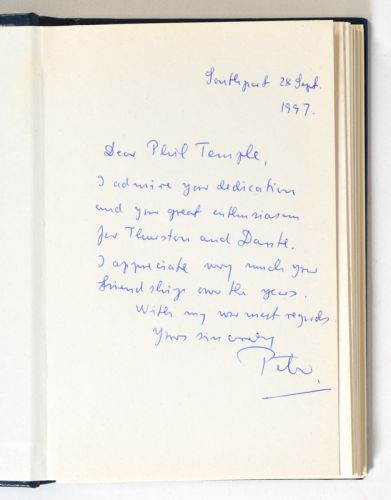 Southport 28 Sept.
1997.
Dear Phil Temple,
I admire your dedication
and your great enthusiasm
for Thurston and Dante.
I appreciate very much your
friendship over the years.
With my warmest regards
Yours sincerely
Peter.